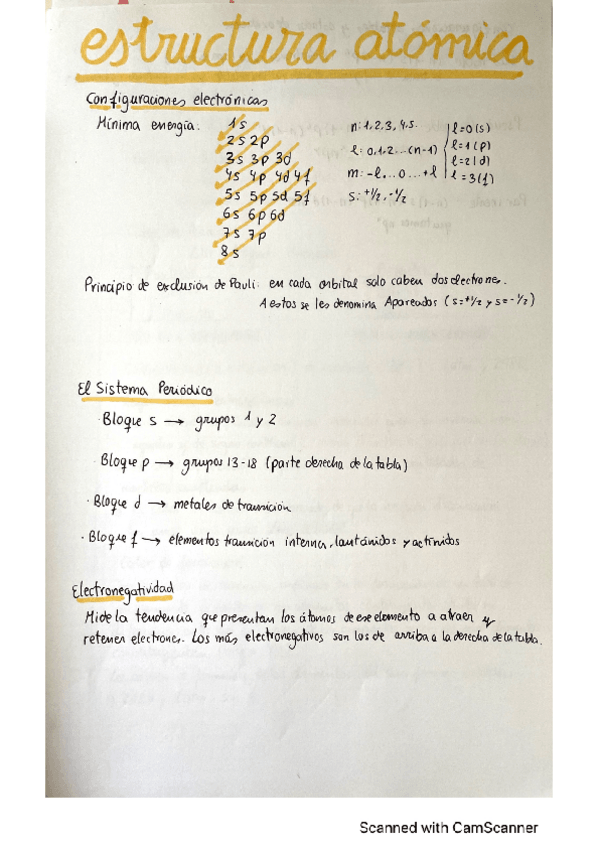 estructura atómica
Configuraciones electrónicas
Mínima energía:
1s
2s 2p
3s 3p 3d
4s 4p 4d 4f
5s 5p 5d 5f
6s 6p 6d
7s 7p
8s
n: 1, 2, 3, 4, 5.
l: 0, 1, 2 ... (n-1)
m: -l ... 0 ... +l
s: +1/2, -1/2
l=0 (s)
l=1 (p)
l=2 (d)
l=3 (f)
Principio de exclusión de Pauli: en cada orbital solo caben dos electrones.
A estos se les denomina Apareados (s=+1/2 y s=-1/2)
El Sistema Periódico
· Bloque s → grupos 1 y 2
· Bloque p → grupos 13-18 (parte derecha de la tabla)
· Bloque d → metales de transición
· Bloque f → elementos transición interna, lantánidos y actínidos
Electronegatividad
Mide la tendencia que presentan los átomos de ese elemento a atraer y
retener electrones. Los más electronegativos son los de arriba a la derecha de la tabla.
Scanned with CamScanner